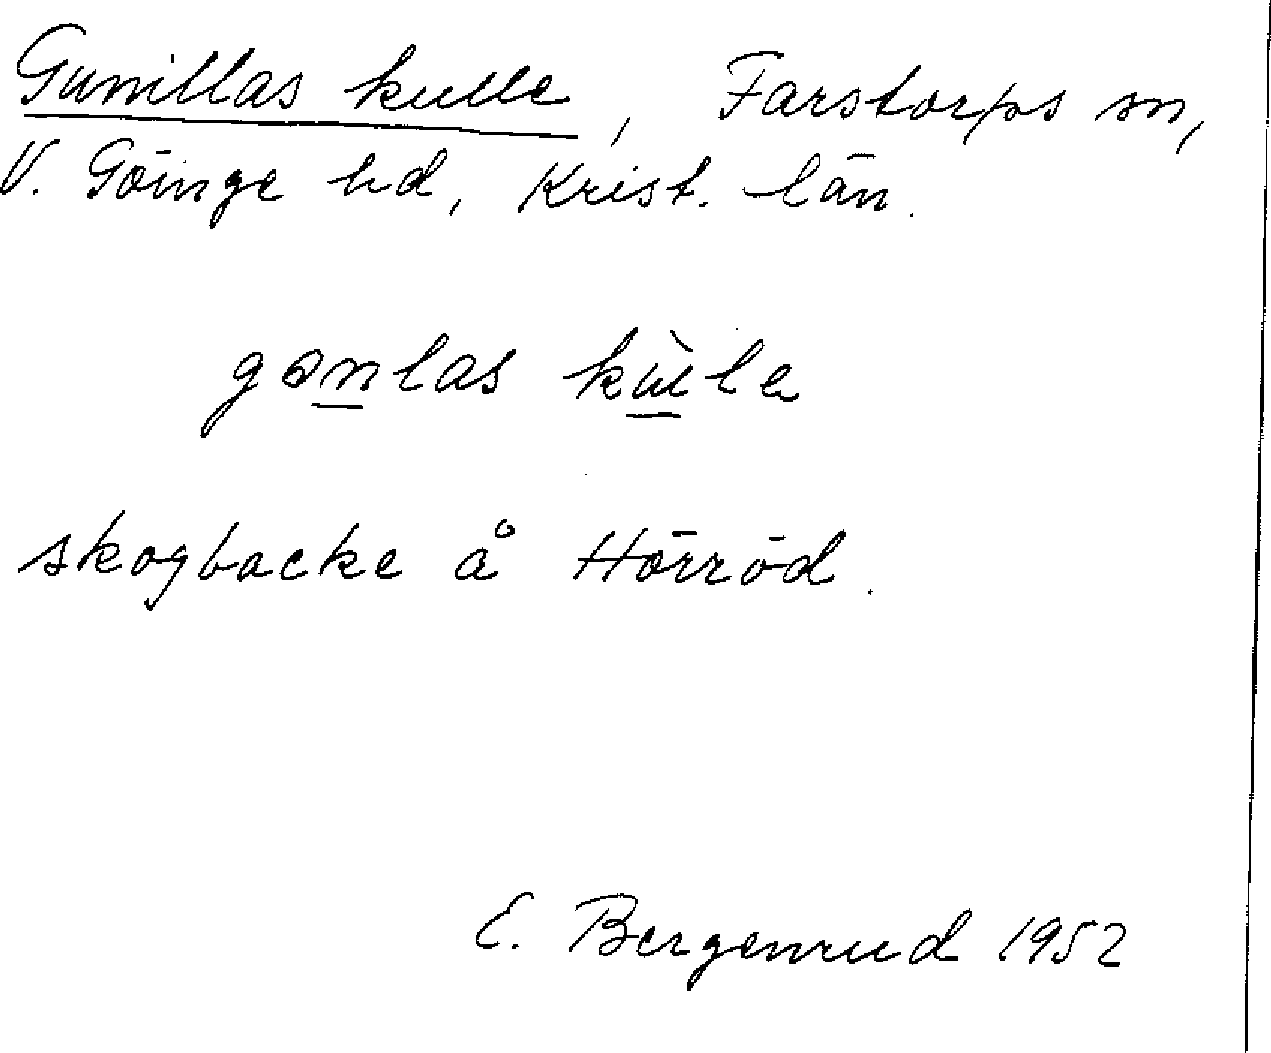 Gunillas kulle, Farstorps sn,
V. Göinge hd, Krist. län.
gɵnlas kùle
skogbacke å Hörröd.
E. Bergenrud 1952